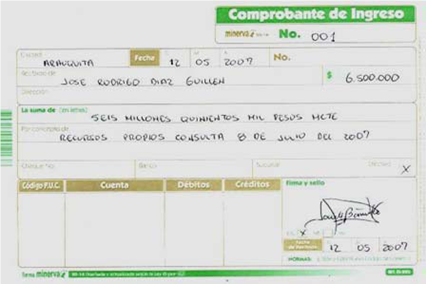 Comprobante de Ingreso
minerva No. 001
Ciudad ARAUQUITA Fecha 12 05 2007 No.
Recibido de JOSE RODRIGO DIAZ GUILLEN $ 6.500.000
Dirección
La suma de (en letras) SEIS MILLONES QUINIENTOS MIL PESOS MCTE
Por concepto de RECURSOS PROPIOS CONSULTA 8 DE JULIO DEL 2007
Cheque No. Banco Sucursal Efectivo X
Código P.U.C. Cuenta Débitos Créditos Firma y sello
X
Fecha de Recibido 12 05 2007
forma minerva